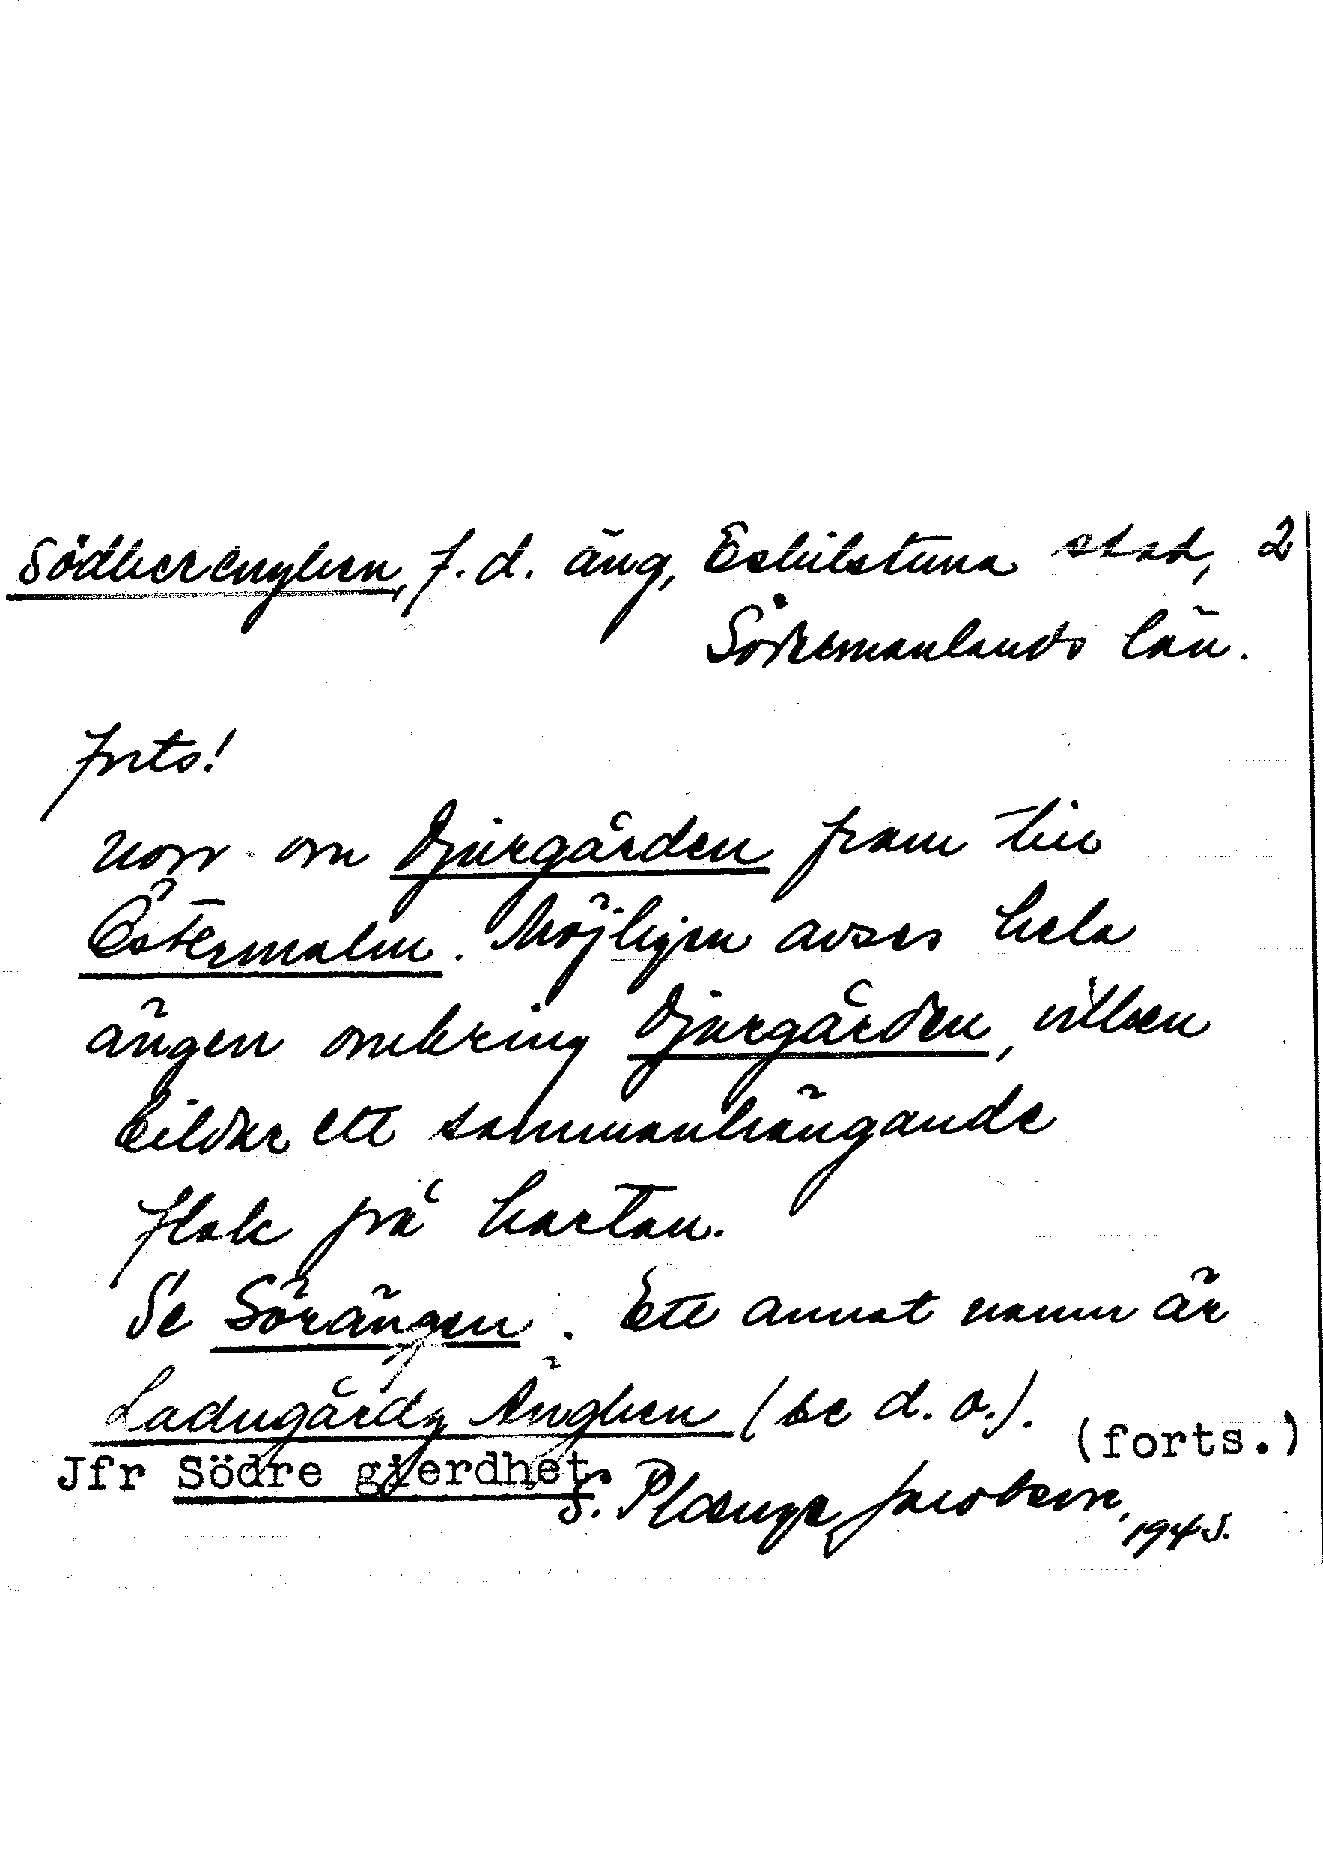 Södherenghen, f.d. äng, Eskilstuna stad, 2
Södermanlands län.
forts!
norr om Djurgården fram till
Östermalm. Möjligen avses hela
ängen omkring Djurgården, vilken
bildar ett sammanhängande
flak på kartan.
Se Sörängen. Ett annat namn är
Ladugårdz Änghen (se d.o.).
(forts.)
Jfr Södre gierdhet.
S. Plænge Jacobson,
1945.